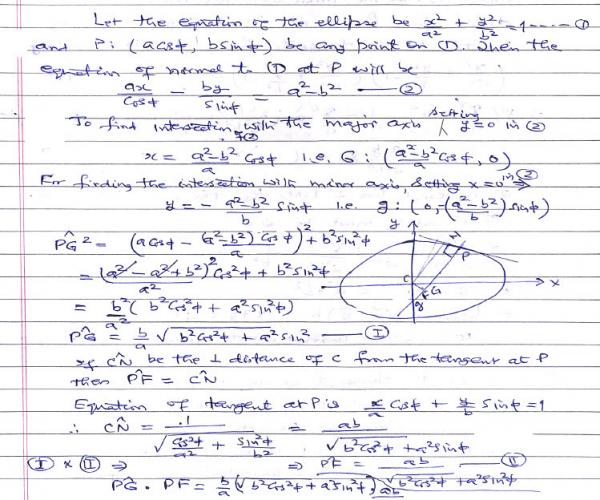 Let the equation of the ellipse be x²/a² + y²/b² = 1 ----- ①
and P: (a cos φ, b sin φ) be any point on ①. Then the
equation of normal to ① at P will be
ax/cos φ − by/sin φ = a² − b² — ②
To find intersection of ② with the major axis setting y=0 in ②
x = (a² − b²)/a cos φ i.e. G: ((a² − b²)/a cos φ, 0)
For finding the intersection with minor axis, setting x=0 in ② ⇒
y = − (a² − b²)/b sin φ i.e. g: (0, −(a² − b²)/b) sin φ)
PG² = (a cos φ − (a² − b²)/a cos φ)² + b² sin² φ
= (a² − a² + b²)²/a² cos² φ + b² sin² φ
= b²/a² (b² cos² φ + a² sin² φ)
PG = b/a √(b² cos² φ + a² sin² — Ⓘ
y
N
P
C
x
G
g
If CN be the ⊥ distance of C from the tangent at P
then PF = CN
Equation of tangent at P is x/a cos φ + y/b sin φ = 1
∴ CN = 1/√(cos² φ/a² + sin² φ/b²) = ab/√(b² cos² φ + a² sin φ
Ⓘ × Ⓘⓘ ⇒ ⇒ PF = ab — Ⓘⓘ
PG · PF = b/a (√(b² cos² φ + a² sin² φ) √(b² cos² φ + a² sin² φ
ab